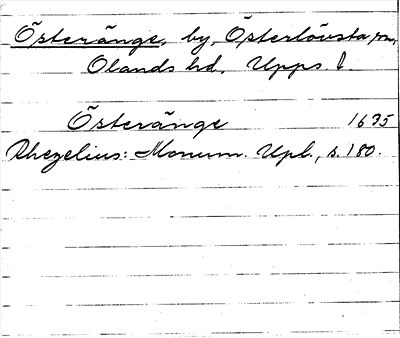 Österänge, by, Österlövsta sn,
Olands hd, Upps. l.
Österänge 1635
Rhezelius: Monum. Upl., s. 180.